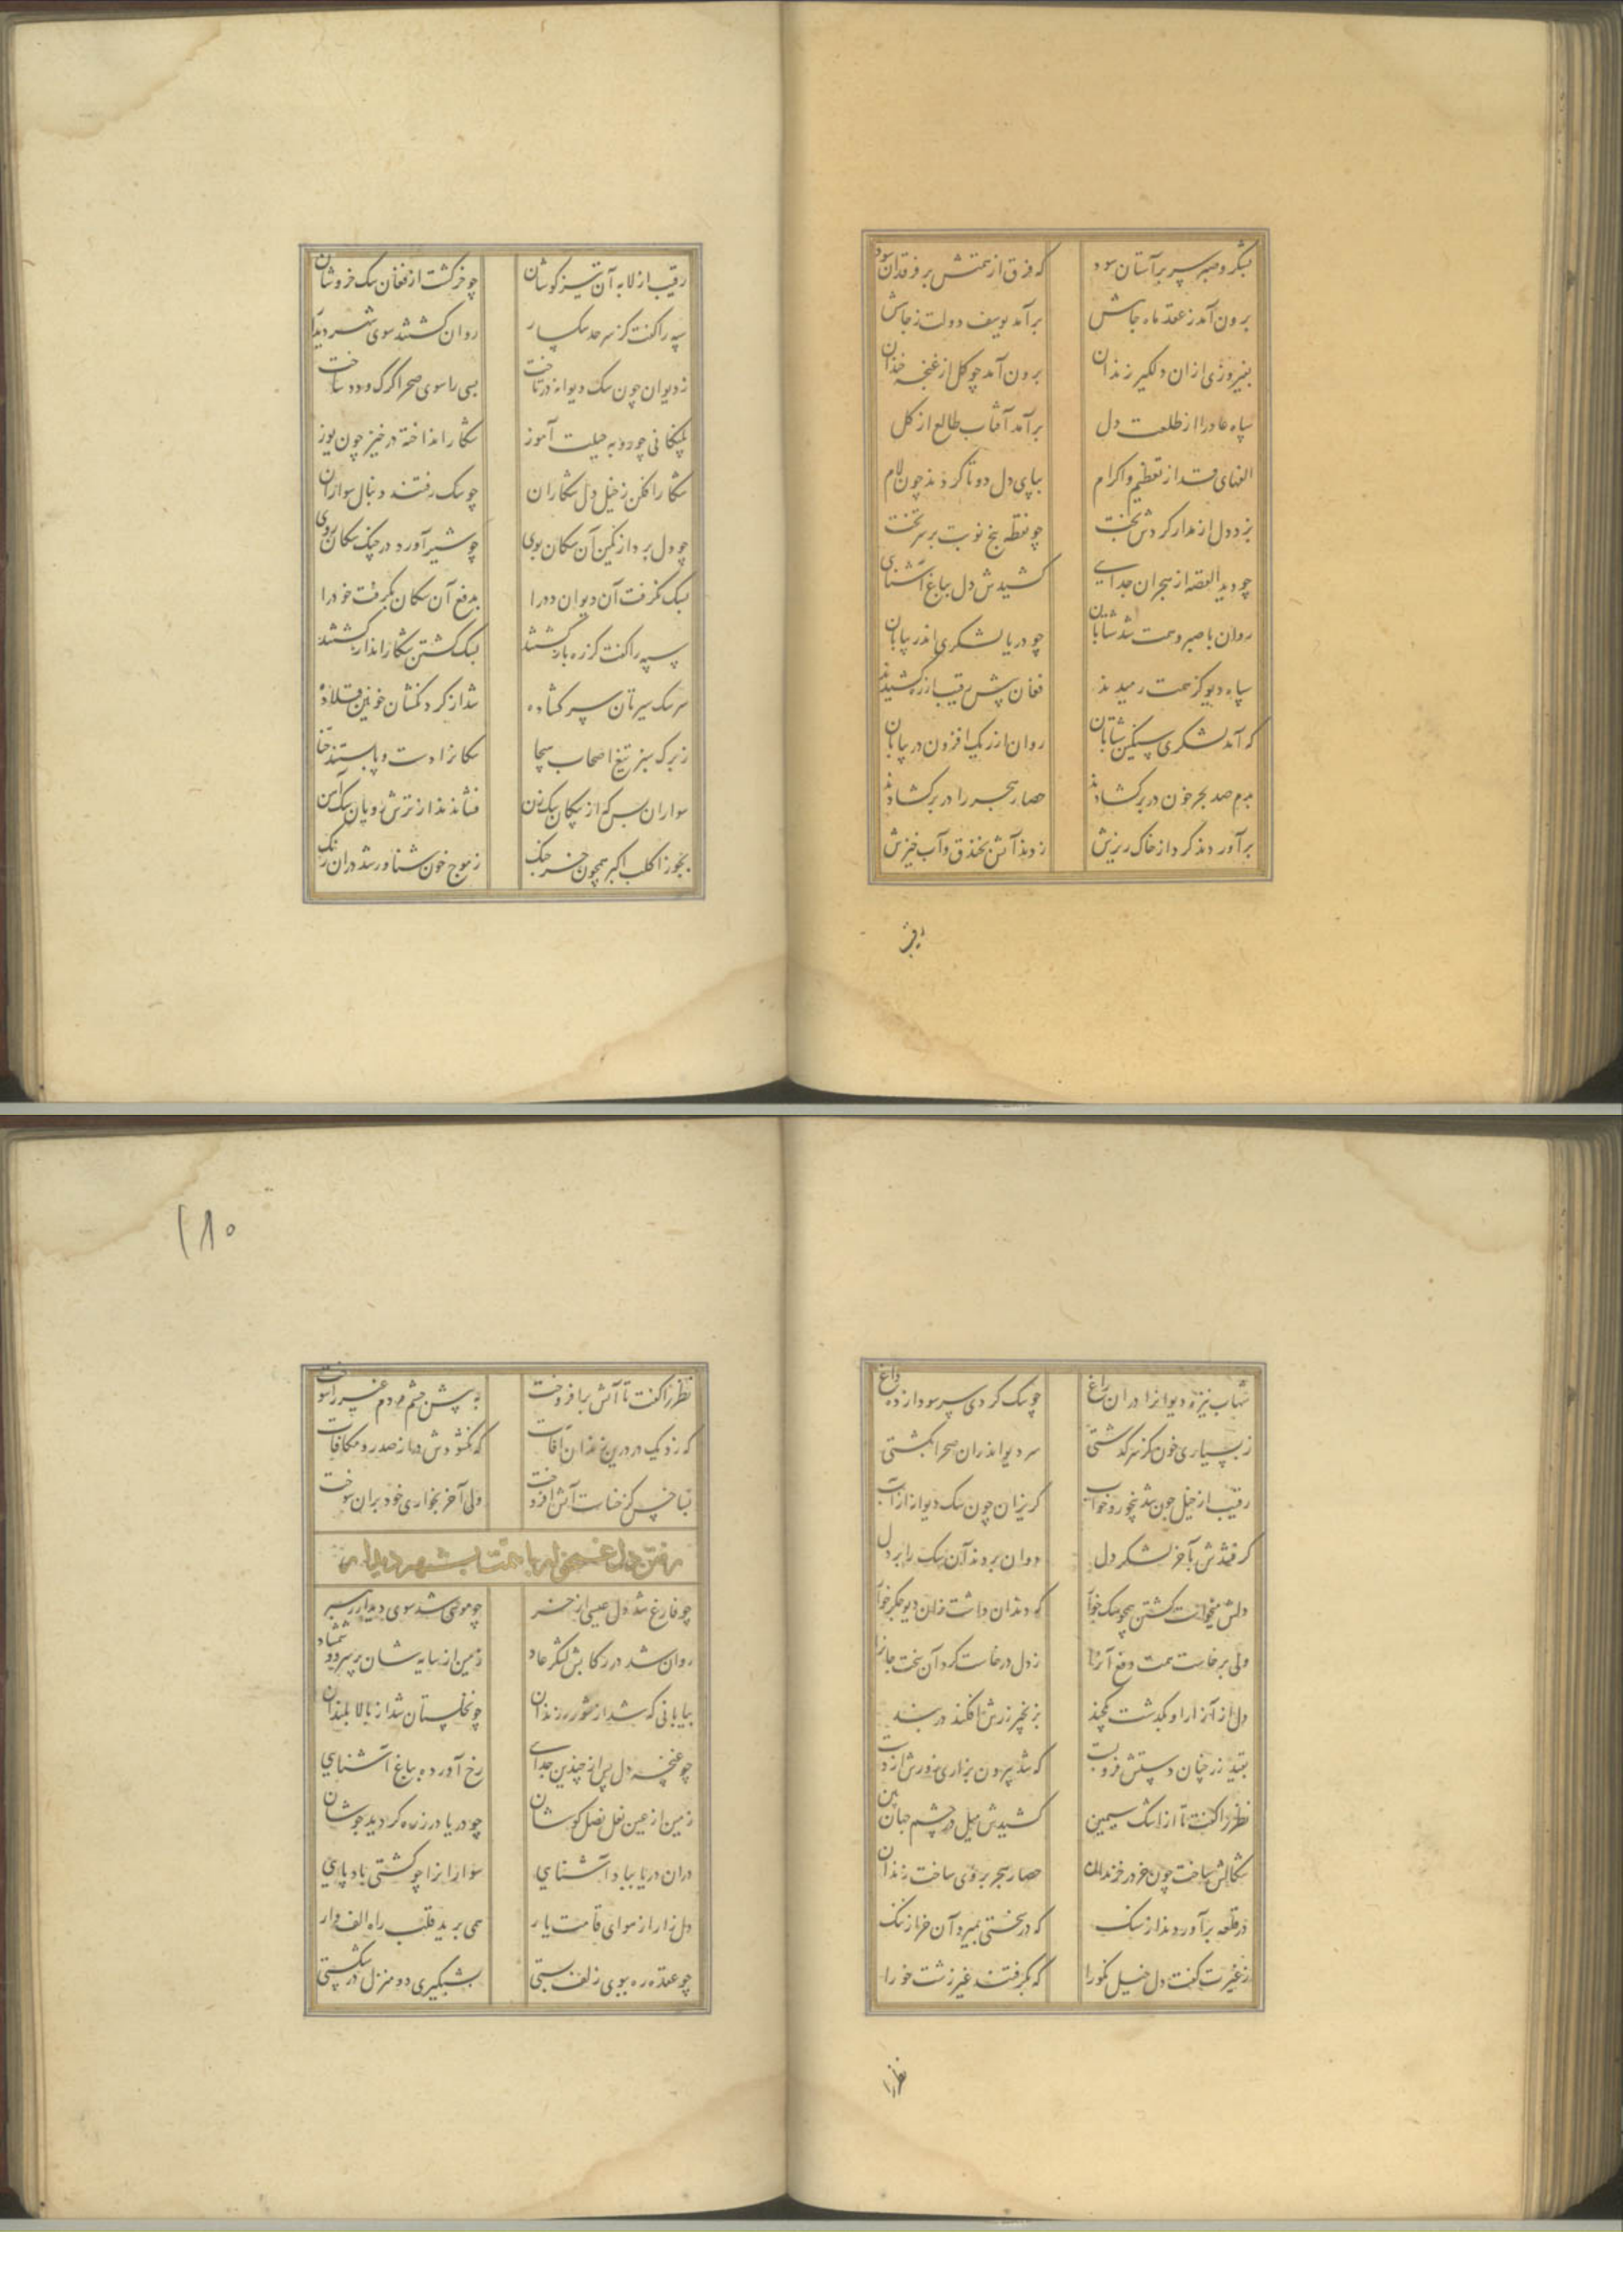 بشکر وصبر سر بر آستان سود که فرق از همتش بر فرقدان سود
برون آمد ز عقد ماه جاهش برآمد یوسف دولت ز چاهش
بفیروزی ازان دلگیر زندان برون آمد چو گل از غنچه خندان
سپاه عاد را از طلعت دل برآمد آفتاب طالع از گل
الفهای قد از تعظیم و اکرام بپای دل دوتا کردند چون لام
بزد دل از مدار گردش بخت چو نقطه پنج نوبت بر سر تخت
چو دید القصه از هجران جدایی کشیدش دل بباغ آشنایی
روان با صبر و همت شد شتابان چو دریا لشکری اندر بیابان
سپاه دیو کز همت رمیدند فغان پیش رقیب از ره کشیدند
که آمد لشکری سنگین شتابان روان از ریگ افزون در بیابان
بدم صد بحر خون در بر گشادند حصار هجر را در بر گشادند
برآوردند گرد از خاک ریزش زدند آتش بخندق و آب خیزش
رقیب
رقیب از لابه آن تیز کوشان چو خر گشت از فغان سگ خروشان
سپه را گفت کز سرحد سگسار روان گشتند سوی شهر دیدار
ز دیوان چون سگ دیوانه در تاخت بسی را سوی صحرا گرگ و دد ساخت
پلنگانی چو روبه حیلت آموز شکار انداخته در خیز چون یوز
شکار افکن ز خیل دل شکاران چو سگ رفتند دنبال سواران
چو دل برد از کمین آن سگان بوی چو شیر آورد در جنگ سگان روی
بسگ نگرفت آن دیوان دد را بدفع آن سگان بگرفت خود را
سپه را گفت کز ره بازگشتند بسگ کشتن شکار انداز گشتند
سر سگ سیرتان سر گشاده شد از گردنشان خونین قلاده
ز برگ سبز تیغ اصحاب هیجا سگانرا دست و پا بستند
سواران بس که از پیکان سگ زن فشاندند از ترش رویان سگ آهن
بجوزا کلب اکبر همچون خرچنگ ز موج خون شناور شد دران رنگ
شهاب نیزه دیوانرا دران راغ چو سگ کردی سر سودا زده داغ
ز بسیاری خون کز سر گذشتی سر دیو اندران صحرا بگشتی
رقیب از خیل چون شد بیخور و خواب گریزان چون سگ دیوانه از آب
گرفتندش بآخر لشکر دل دوان بردند آن سگ را بر دل
دلش میخواست کشتن همچو سگ خوار که دندان داشت ازان دیو جگرخوار
ولی برخاست همت دفع آنرا ز دل درخواست کرد آن سخت جانرا
دل از آزار او بگذشت یکچند بزنجیر زرش افکند در بند
بقید زر چنان دستش فروبست که شد بیرون بزاری زورش از دست
نظر را گفت تا از اشک سیمین کشیدش میل در چشم جهان بین
سگالش ساخت چون خر در خزندان حصار هجر بر وی ساخت زندان
در قلعه برآوردند از سنگ که در سختی بمیرد آن خر از ننگ
ز غیرت گفت دل خیل نکو را که بگرفتند غیر زشت خو را
نظر را
۱۸۰
نظر را گفت تا آتش برافروخت به پیش چشم مردم غیر را سوخت
که نزدیک در درین زندان آفات که نگشودش در از صد رو مکافات
بسا خس کز خسات آتش افروخت ولی آخر بخواری خود بران سوخت
رفتن دل غمخوار با همت بشهر دیدار
چو فارغ شد دل عیسی از خر چو موسی شد سوی دیدار رهبر
روان شد در رکابش لشکر عاد زمین از سایه شان پر سرو و شمشاد
بیابانی که شد از شور زندان چو نخلستان شد از بالا بلندان
چو غنچه دل پس از چندین جدایی رخ آورده بباغ آشنایی
زمین از عین نعل کوشان چو دریا در زره گردید جوشان
دران دریا بباد آشنایی سوارانرا چو کشتی باد پایی
دل زار از هوای قامت یار همی برید قلب راه الف وار
چو عقده ره ببوی زلف بستی بشبگیری دو منزل در شکستی